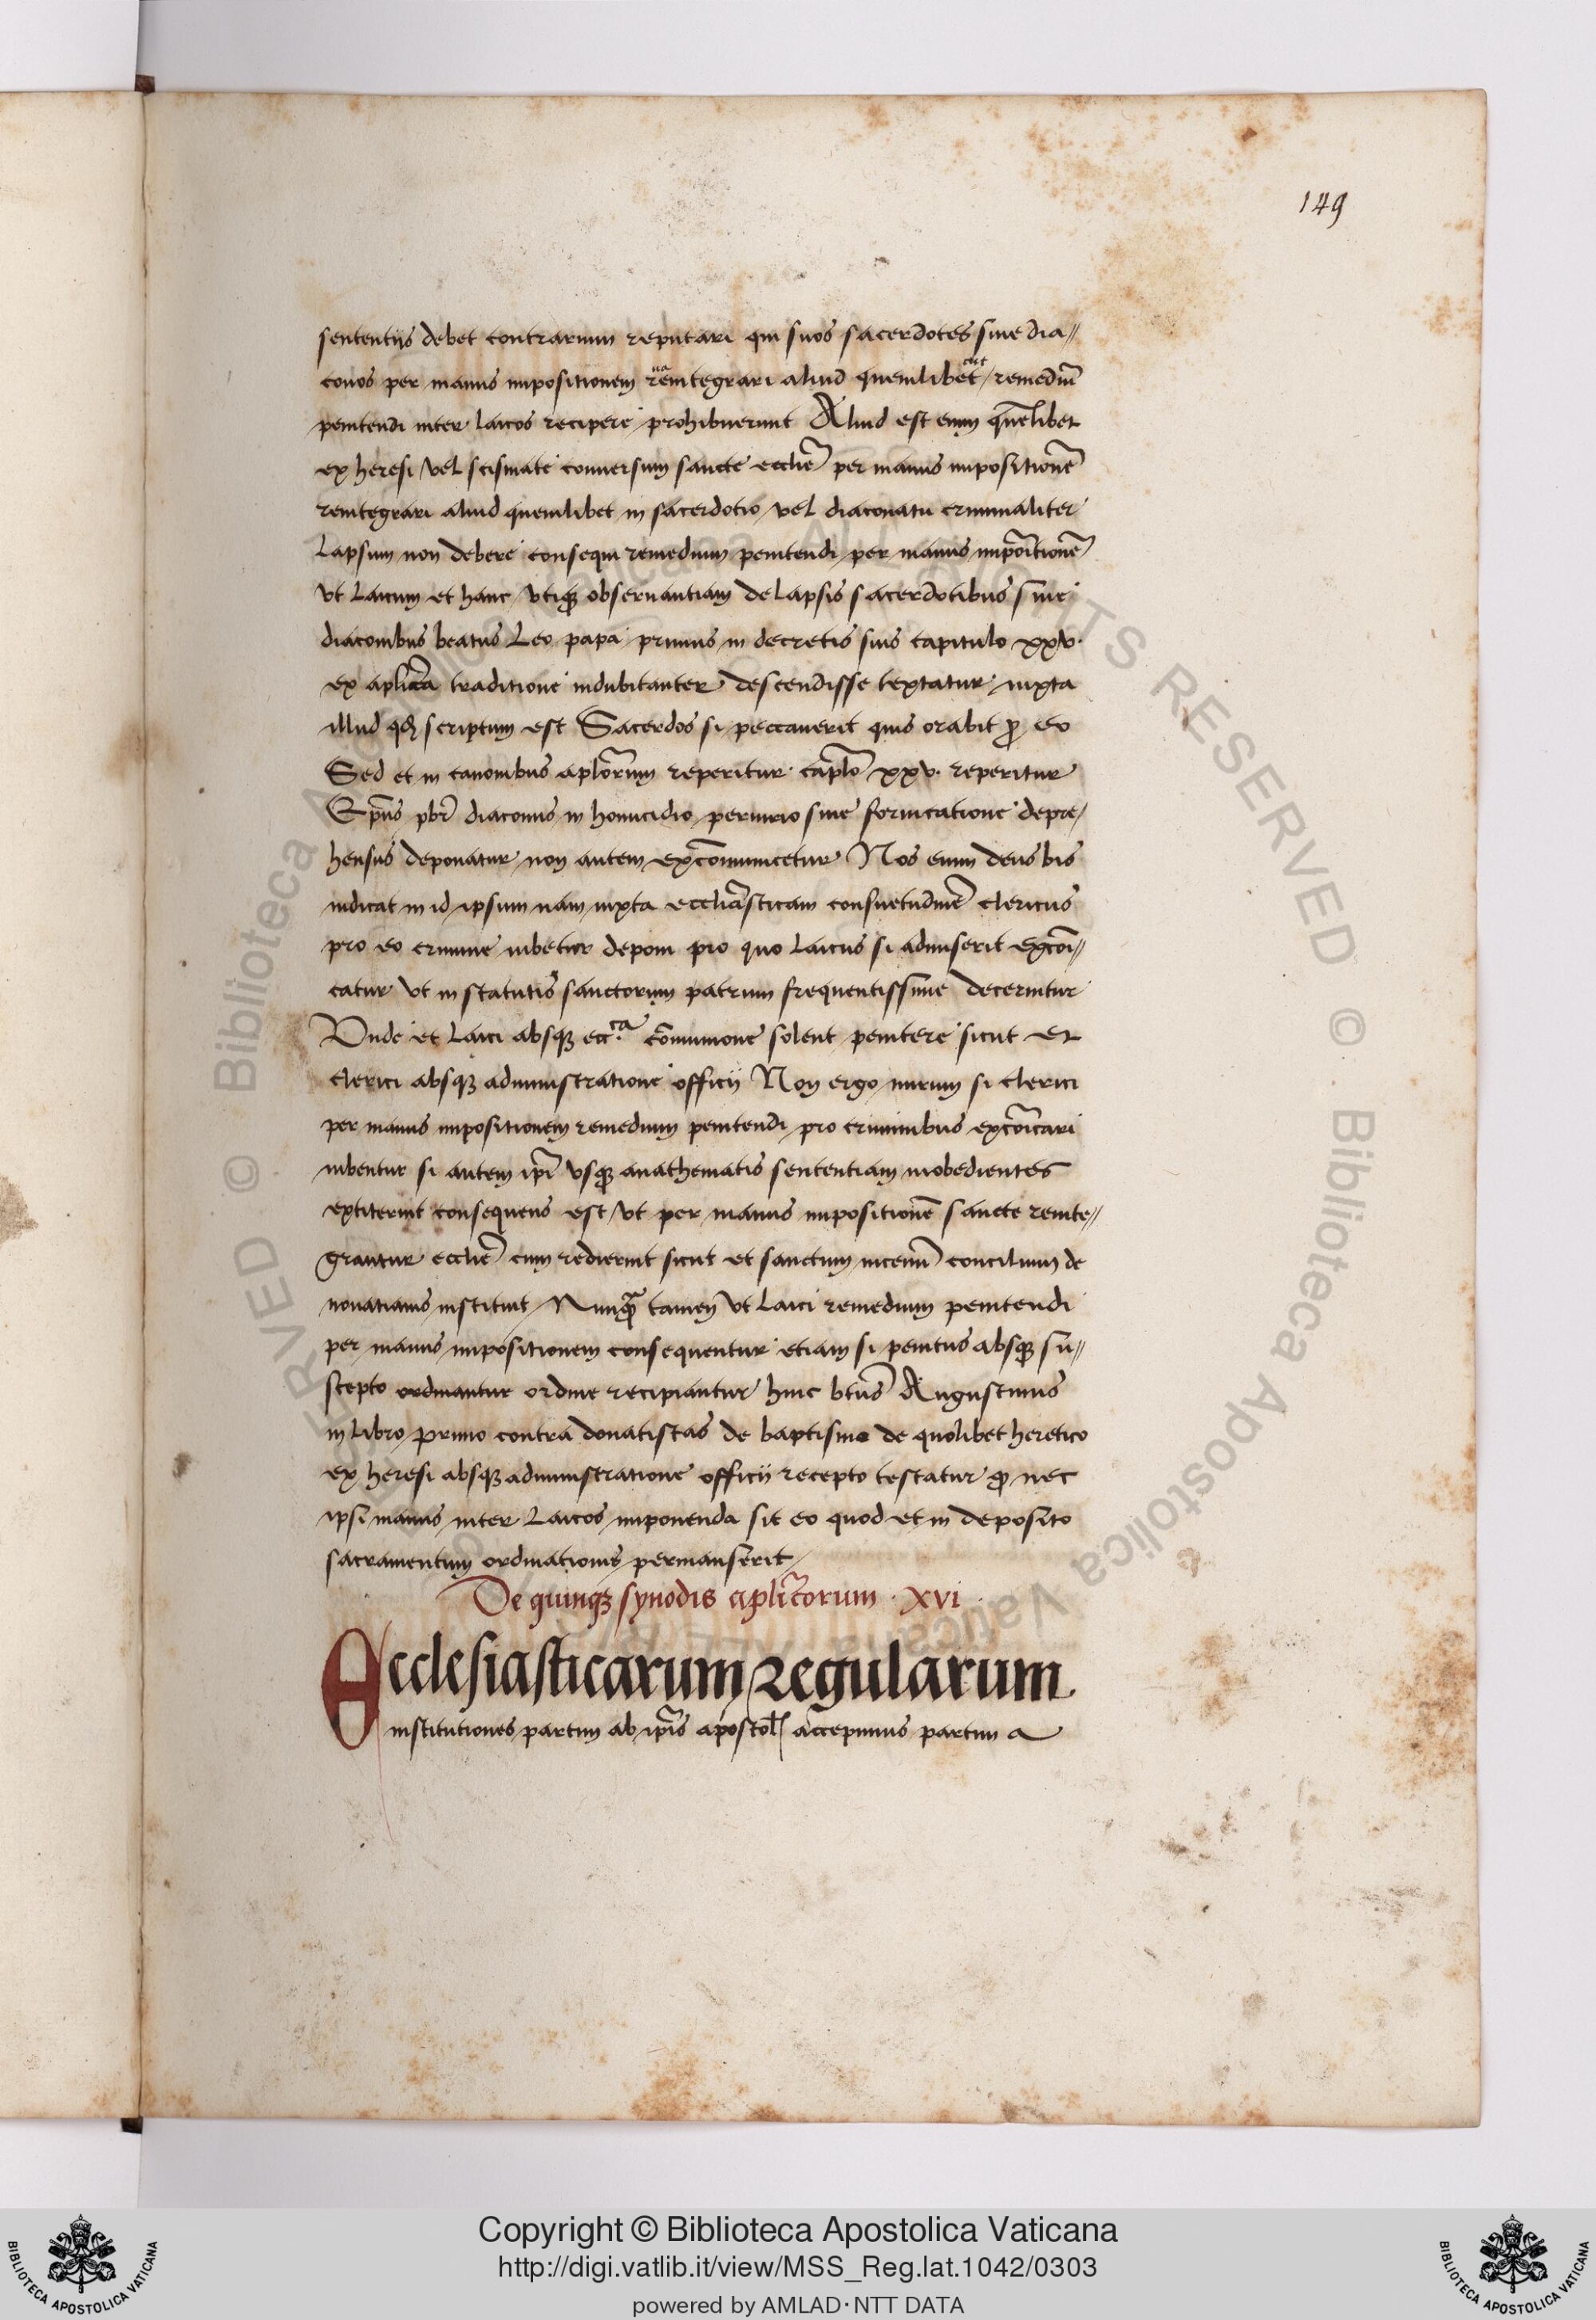 149
sententijs debet contrarium reputari qui suos sacerdotes siue dia//
conos per manus impositionem reintegrari aliud quemlibet / remediũ
penitendi inter laicos recipere prohibuerunt Aliud est enim quẽlibet
ex heresi / vel scismate conuersum sancte ecclie᷒ per manus impositionẽ
reintegrari aliud quemlibet in sacerdotio / vel diaconatu criminaliter
Lapsum non debere consequi remedium penitendi per manus impoĩtionẽ
vt Laicum et hanc / vtiqꝫ obseruantiam de Lapsis sacerdotibus siue
diaconibus beatus Leo papa primus in decretis suis capitulo xxv.
ex aplic̃a traditione indubitanter descendisse textatur iuxta
illud qđ scriptum est Sacerdos si peccauerit quis orabit ꝓ eo
Sed et in canonibus aplõrum reperitur cap̃lo xxv. reperitur
Ep̃us pb̃r diaconus in homicidio periurio siue fornicatione depre/
hensus deponatur non autem excõmunicetur Nos enim deus bis
iudicat in id ipsum nam iuxta eccliãsticam consuetudinẽ clericus
pro eo crimine iubetur deponi pro quo Laicus si admiserit excõi//
catur vt in statutis sanctorum patrum frequentissime decernitur
Vnde et Laici absqꝫ ecc.ca cõmunione solent penitere sicut et
clerici absqꝫ administratione officij Non ergo mirum si clerici
per manus impositionem remedium penitendi pro criminibus excõicari
iubentur si autem ip̃i vsqꝫ anathematis sententiam inobedientes
extiterint consequens est / vt per manus impositionẽ sancte reinte//
grantur ecclie᷒ cum redierint sicut et sanctum nicenũ concilium de
nouatianis instituit / Nunqꝫ̃ tamen vt Laici remedium penitendi
per manus impositionem consequentur etiam si penitus absqꝫ su//
scepto ordinantur ordine recipiantur hinc btũs Augustinus
in libro primo contra donatistas de baptismo de quolibet heretico
ex heresi absqꝫ administratione officij recepto testatur ꝙ nec
ipsi manus inter Laicos imponenda sit eo quod et in deposito
sacramentum ordinationis permanserit /
De quinqꝫ synodis aplic̃orum . XVI .
Ecclesiasticarum regularum
institutiones partim ab ip̃is apostol̃ accepimus partim a
Copyright © Biblioteca Apostolica Vaticana
http://digi.vatlib.it/view/MSS_Reg.lat.1042/0303
powered by AMLAD·NTT DATA
BIBLIOTECA APOSTOLICA VATICANA
BIBLIOTECA APOSTOLICA VATICANA